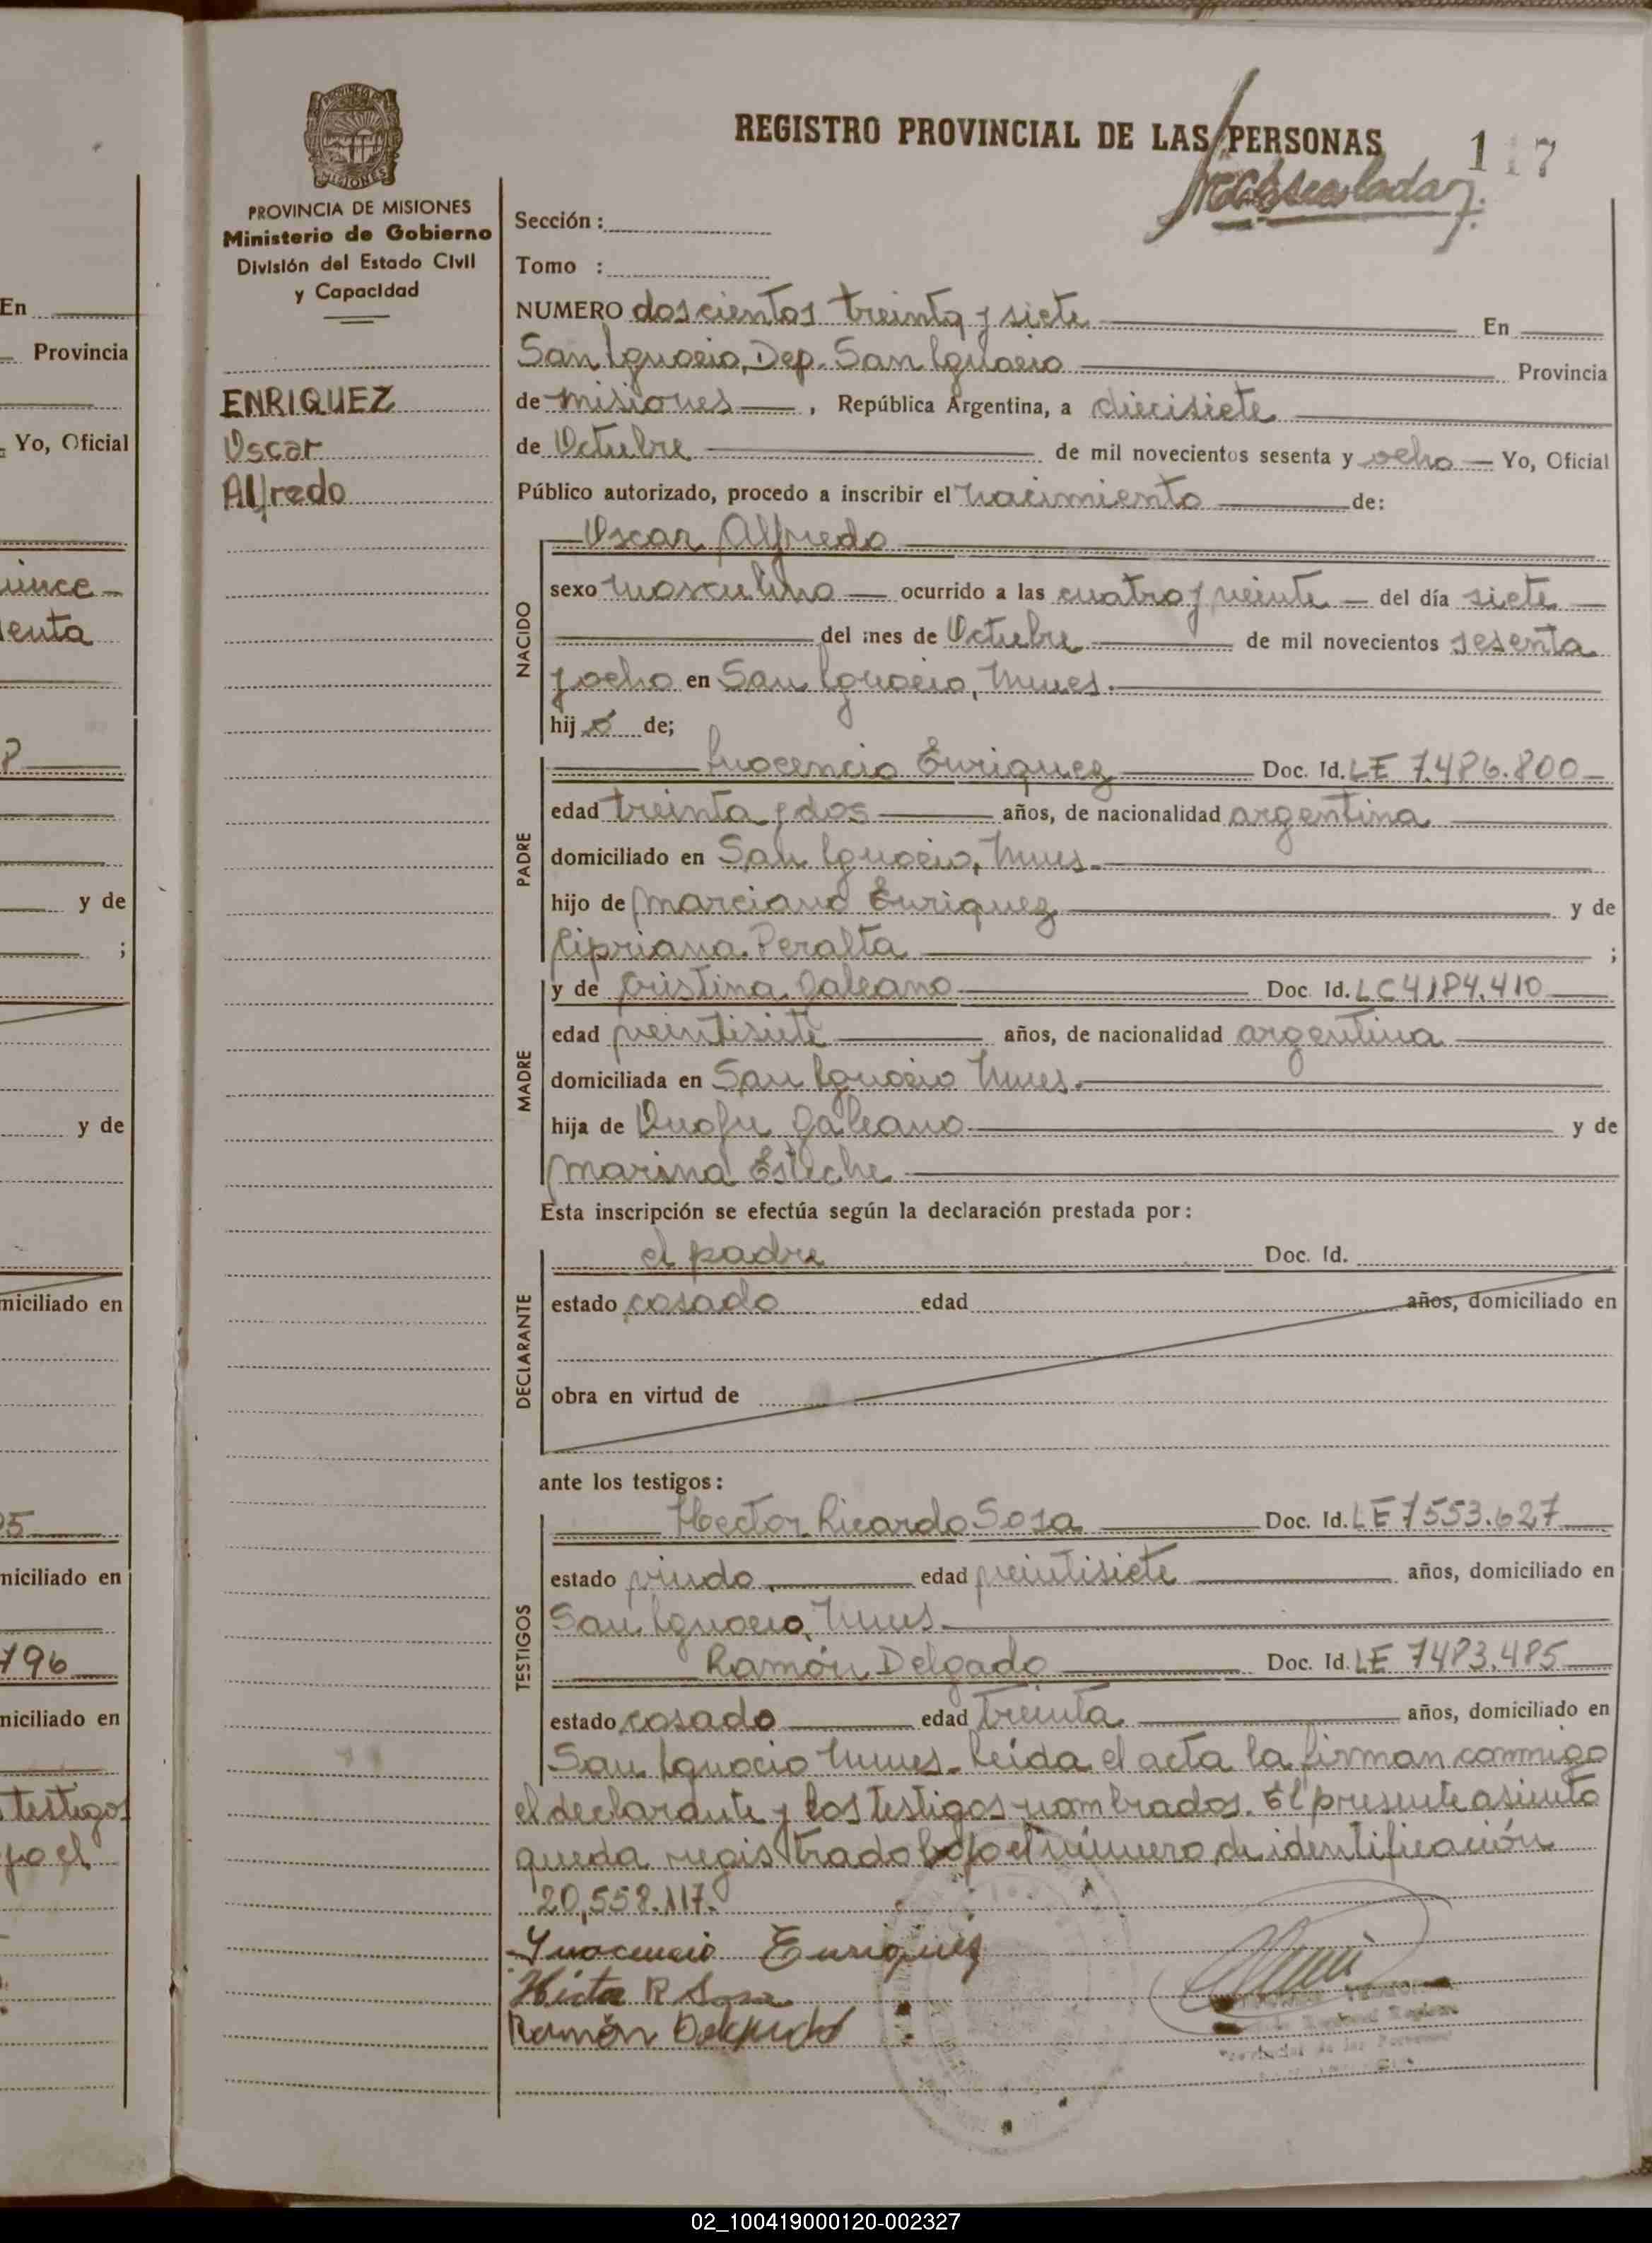 En
Provincia
Yo, Oficial
enta
y de
;
y de
miciliado en
niciliado en
796
niciliado en
testigos
jo el
PROVINCIA DE MISIONES
Ministerio de Gobierno
División del Estado Civil
y Capacidad
ENRIQUEZ
Oscar
Alfredo
REGISTRO PROVINCIAL DE LAS PERSONAS
117
Sección :
Tomo :
NUMERO doscientos treinta y siete En
San Ignacio, Dep. San Ignacio Provincia
de Misiones , República Argentina, a diecisiete
de Octubre de mil novecientos sesenta y ocho Yo, Oficial
Público autorizado, procedo a inscribir el nacimiento de:
Oscar Alfredo
NACIDO
sexo masculino ocurrido a las cuatro y veinte del día siete
del mes de Octubre de mil novecientos sesenta
y ocho en San Ignacio, Mnes.
hij o de;
PADRE
Inocencio Enriquez Doc. Id. LE 7.486.800
edad treinta y dos años, de nacionalidad argentina
domiciliado en San Ignacio, Mnes.
hijo de Marciano Enriquez y de
Cipriana Peralta ;
MADRE
y de Cristina Galeano Doc. Id. LC 4.184.410
edad veintisiete años, de nacionalidad argentina
domiciliada en San Ignacio Mnes.
hija de Galeano y de
Marina Esteche
Esta inscripción se efectúa según la declaración prestada por:
DECLARANTE
el padre Doc. Id.
estado casado edad años, domiciliado en
obra en virtud de
ante los testigos:
TESTIGOS
Hector Ricardo Sosa Doc. Id. LE 7553.627
estado viudo, edad veintisiete años, domiciliado en
San Ignacio, Mnes.
Ramón Delgado Doc. Id. LE 7483.485
estado casado edad treinta años, domiciliado en
San Ignacio Mnes. Leída el acta la firman conmigo
el declarante y los testigos nombrados. El presente asiento
queda registrado bajo el número de identificación
20.558.117.
Inocencio Enriquez
Hector R Sosa
Ramón Delgado
02_100419000120-002327